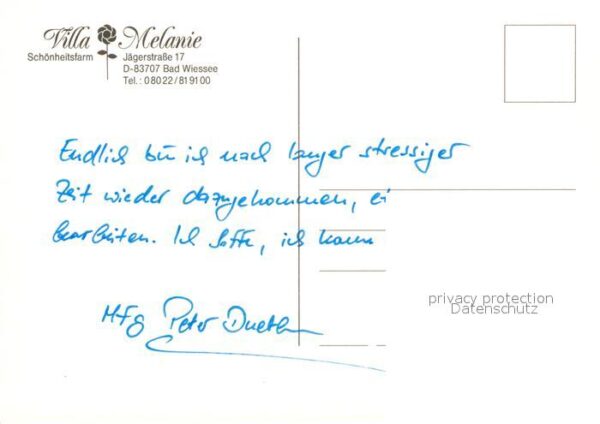 Villa Melanie
Schönheitsfarm Jägerstraße 17
D-83707 Bad Wiessee
Tel.: 08022/819100
Endlich bin ich nach langer stressiger
Zeit wieder dazugekommen, ei
bearbeiten. Ich hoffe, ich kann
MfG Peter
privacy protection
Datenschutz